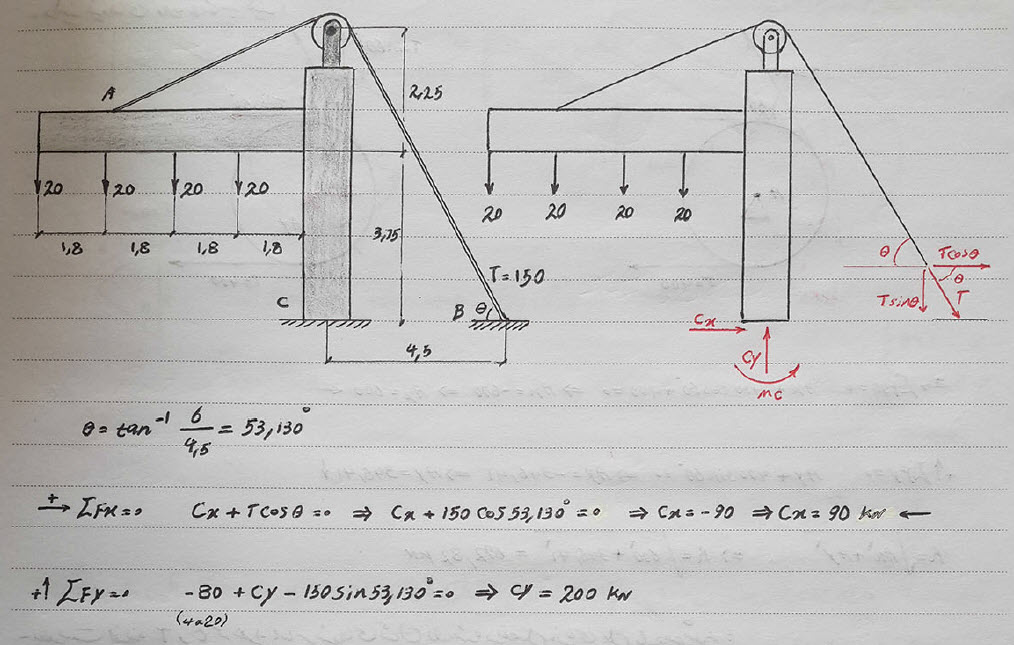 A
2,25
20 20 20 20
1,8 1,8 1,8 1,8
3,75
T=150
C
B θ
4,5
20 20 20 20
θ Tcosθ
θ
Tsinθ T
Cx
Cy
MC
θ = tan⁻¹ 6/4,5 = 53,130°
+→ ΣFx=0 Cx + Tcosθ = 0 ⇒ Cx + 150 cos 53,130° = 0 ⇒ Cx = -90 ⇒ Cx = 90 kN ←
+↑ ΣFy=0 -80 + Cy - 150 sin 53,130° = 0 ⇒ Cy = 200 kN
(4*20)